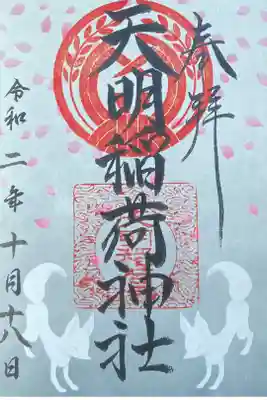 奉拝
天明稲荷神社
令和二年十月十八日